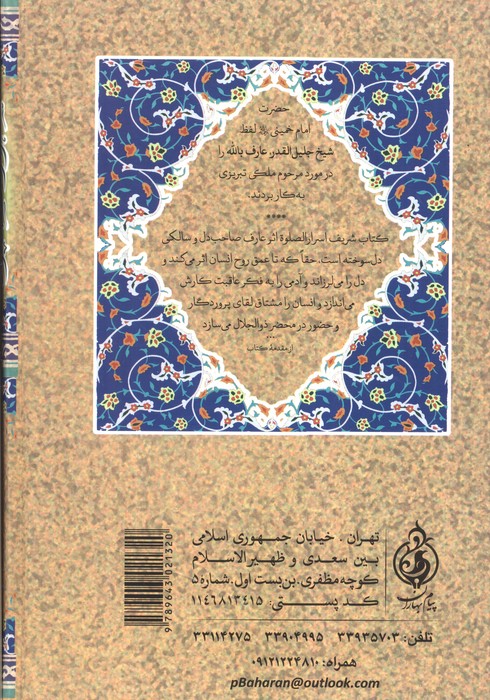 حضرت
امام خمینی لفظ
شیخ جلیل‌القدر، عارف بالله را
در مورد مرحوم ملکی تبریزی
به کار بردند.
****
کتاب شریف اسرار الصلوة اثر عارف صاحب دل و سالکی
دل سوخته است. حقا که تا عمق روح انسان اثر می‌کند و
دل را می‌لرزاند و آدمی را به فکر عاقبت کارش
می‌اندازد و انسان را مشتاق لقای پروردگار
و حضور در محضر ذوالجلال می‌سازد
...
از مقدمه کتاب
تهران . خیابان جمهوری اسلامی
بین سعدی و ظهیرالاسلام
کوچه مظفری. بن‌بست اول. شماره ۵
کد پستی: ۱۱۴۶۸۱۳۴۱۵
پیام بهاران
تلفن: ۳۳۹۳۵۷۰۳ ۳۳۹۰۴۹۹۵ ۳۳۱۱۴۲۷۵
همراه: ۰۹۱۲۱۲۲۴۸۱۰
pBaharan@outlook.com
9789643021320